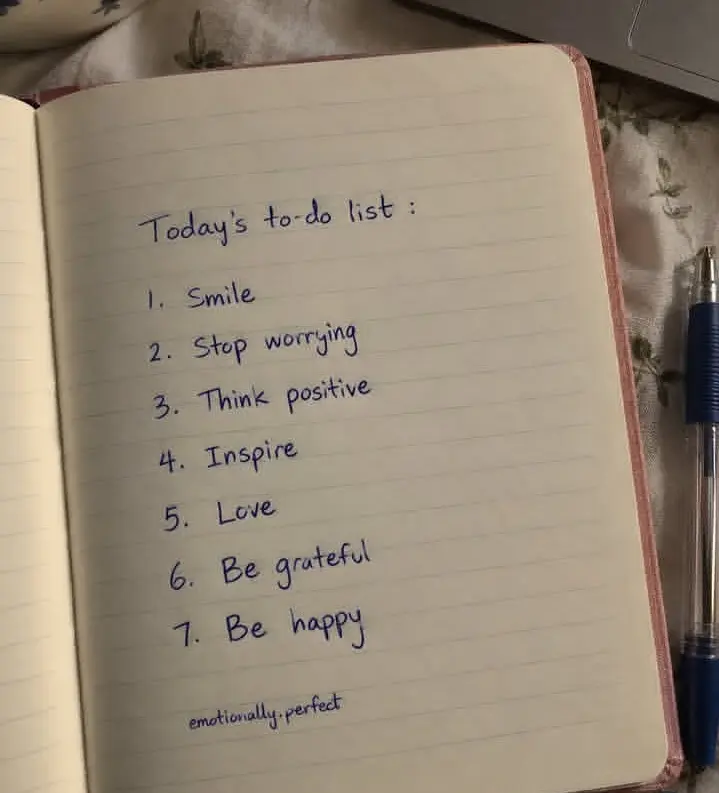 Today's to-do list :
1. Smile
2. Stop worrying
3. Think positive
4. Inspire
5. Love
6. Be grateful
7. Be happy
emotionally.perfect